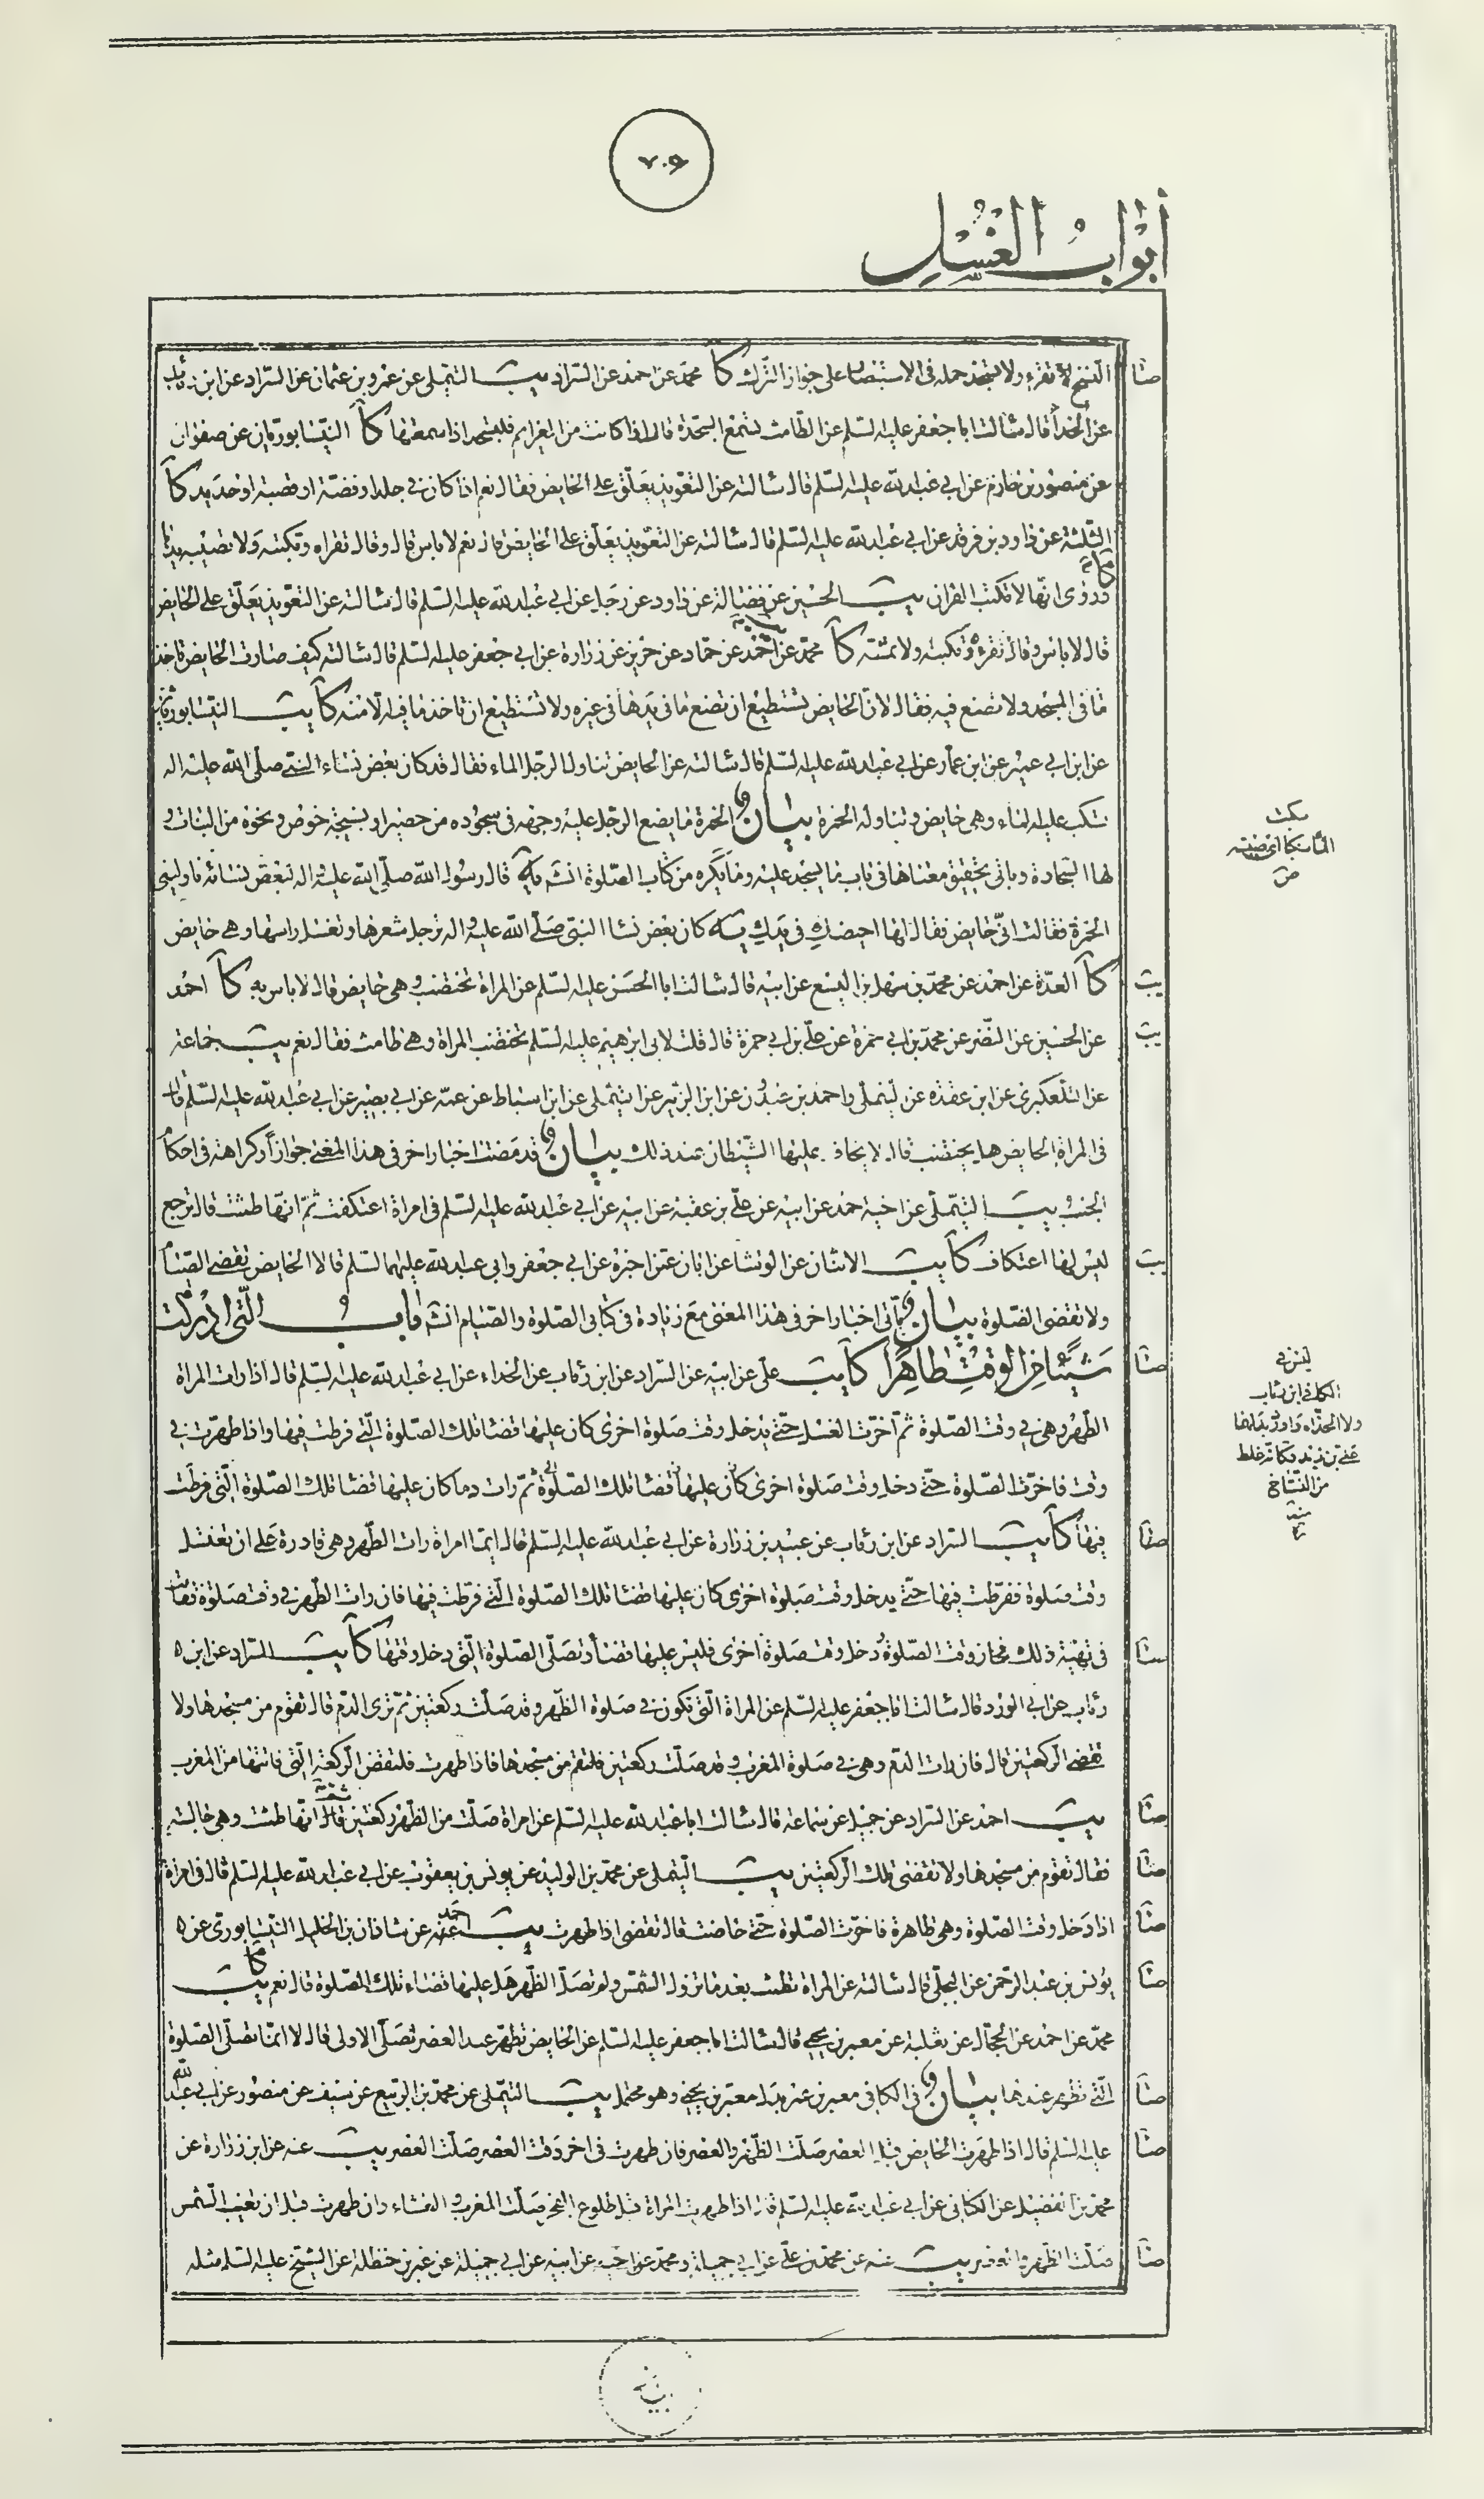 ٢٠٩
أبواب الغسل
النسخ لا تقرء ولا تسجد حمله في الاستبصار على جواز الترك كا محمد عن احمد عن السراد يب التيملى عن عمرو بن عثمان عن السراد عن ابن رئاب
عن الحذا قال سالت ابا جعفر عليه السلم عن الطامث تسمع السجدة قال اذا كانت من العزايم فلتسجد اذا سمعتها كا النيسابوريان عن صفوان
عن منصور بن حازم عن ابي عبد الله عليه السلم قال سالته عن التعويذ يعلق على الحايض فقال نعم اذا كان في جلد او فضة او قصبة او حديد كا
الثلثة عن داود بن فرقد عن ابي عبد الله عليه السلم قال سالته عن التعويذ يعلق على الحايض قال نعم لا باس قال وقال تقراه وتكتبه ولا تصيبه يدها
وروى انها لا تكتب القران يب الحسين عن فضالة عن داود عن رجل عن ابي عبد الله عليه السلم قال سالته عن التعويذ يعلق على الحايض
قال لا باس وقال تقرءه وتكتبه ولا تمسه كا محمد عن احمد عن حماد عن حريز عن زرارة عن ابي جعفر عليه السلم قال سالته كيف صارت الحايض تاخذ
ما في المسجد ولا تضع فيه فقال لان الحايض تستطيع ان تضع ما في يدها في غيره ولا تستطيع ان تاخذ ما فيه الا منه كا يب النيسابوريان
عن ابن ابي عمير عن ابن عمار عن ابي عبد الله عليه السلم قال سالته عن الحايض تناول الرجل الماء فقال قد كان بعض نساء النبي صلى الله عليه اله
تسكب عليه الماء وهي حايض وتناوله الخمرة بيان الخمرة ما يضع الرجل عليه وجهه في سجوده من حصير او نسيجة خوص ونحوه من النبات و
لها السجادة وياتي تحقيق معناها في باب ما يسجد عليه وما يكره من كتاب الصلوة انشه يه قال رسول الله صلى الله عليه واله لبعض نسائه ناوليني
الخمرة فقالت اني حايض فقال لها احيضك في يدك يه كان بعض نسا النبي صلى الله عليه واله ترجل شعرها وتغسل راسها وهي حايض
كا العدة عن احمد عن محمد بن سهل بن اليسع عن ابيه قال سالت ابا الحسن عليه السلم عن المراة تختضب وهي حايض قال لا باس به كا احمد
عن الحسين عن النضر عن محمد بن ابي حمزة عن علي بن ابي حمزة قال قلت لابي ابرهيم عليه السلم تختضب المراة وهي طامث فقال نعم يب جماعة
عن التلعكبرى عن ابن عقده عن التيملى واحمد بن عبدون عن ابن الزبير عن التيملى عن ابن اسباط عن عمه عن ابي بصير عن ابي عبد الله عليه السلم قال
في المراة الحايض هل تختضب قال لا يخاف عليها الشيطان عند ذلك بيان قد مضت اخبار اخر في هذا المعنى جوازا وكراهة في احكام
الجنب يب التيملى عن اخيه احمد عن ابيه عن علي بن عقبة عن ابيه عن ابي عبد الله عليه السلم في امراة اعتكفت ثم انها طمثت قال ترجع
ليس لها اعتكاف كا يب الاثنان عن الوشا عن ابان عمن اخبره عن ابي جعفر وابي عبد الله عليهما السلم قالا الحايض تقضي الصيام
ولا تقضى الصلوة بيان ياتي اخبار اخر في هذا المعنى مع زيادة في كتابي الصلوة والصيام انشه باب التي ادركت
شيئا من الوقت طاهرا كا يب علي عن ابيه عن السراد عن ابن رئاب عن الحذاء عن ابي عبد الله عليه السلم قال اذا رات المراة
الطهر وهي في وقت الصلوة ثم اخرت الغسل حتى يدخل وقت صلوة اخرى كان عليها قضا تلك الصلوة التي فرطت فيها واذا طهرت في
وقت فاخرت الصلوة حتى دخل وقت صلوة اخرى كان عليها قضا تلك الصلوة ثم رات دما كان عليها قضا تلك الصلوة التي فرطت
فيها كا يب السراد عن ابن رئاب عن عبيد بن زرارة عن ابي عبد الله عليه السلم قال ايما امراة رات الطهر وهي قادرة على ان تغتسل
وقت صلوة ففرطت فيها حتى يدخل وقت صلوة اخرى كان عليها قضا تلك الصلوة التي فرطت فيها فان رات الطهر في وقت صلوة فقامت
في تهيئة ذلك فجاز وقت الصلوة ودخل وقت صلوة اخرى فليس عليها قضا وتصلى الصلوة التي دخل وقتها كا يب السراد عن ابن
رئاب عن ابي الورد قال سالت ابا جعفر عليه السلم عن المراة التي تكون في صلوة الظهر وقد صلت ركعتين ثم ترى الدم قال تقوم من مسجدها ولا
تقضى الركعتين قال فان رات الدم وهي في صلوة المغرب وقد صلت ركعتين فلتقم من مسجدها فاذا طهرت فلتقض الركعة التي فاتتها من المغرب
يب احمد عن السراد عن جميل عن سماعة قال سالت ابا عبد الله عليه السلم عن امراة صلت من الظهر ركعتين ثم انها طمثت وهي جالسة
فقال تقوم من مسجدها ولا تقضى تلك الركعتين يب التيملى عن محمد بن الوليد عن يونس بن يعقوب عن ابي عبد الله عليه السلم قال في امراة
اذا دخل وقت الصلوة وهي طاهرة فاخرت الصلوة حتى حاضت قال تقضى اذا طهرت يب احمد عن شاذان بن الخليل النيسابورى عن
يونس بن عبد الرحمن عن البجلى قال سالته عن المراة تطمث بعد ما تزول الشمس ولم تصل الظهر هل عليها قضاء تلك الصلوة قال نعم كا يب
محمد عن احمد عن الحجال عن ثعلبة عن معمر بن يحيى قال سالت ابا جعفر عليه السلم عن الحايض تطهر عند العصر تصلى الاولى قال لا انما تصلى الصلوة
التي تطهر عندها بيان في الكافي معمر بن عمر بدل معمر بن يحيى وهو محتمل يب التيملى عن محمد بن الربيع عن سيف عن منصور عن ابي عبد الله
عليه السلم قال اذا طهرت الحايض قبل العصر صلت الظهر والعصر فان طهرت في اخر وقت العصر صلت العصر يب عنه عن ابن زرارة عن
محمد بن الفضيل عن الكنانى عن ابي عبد الله عليه السلم قال اذا طهرت المراة قبل طلوع الفجر صلت المغرب والعشاء وان طهرت قبل ان تغيب الشمس
صلت الظهر والعصر يب عنه عن محمد بن علي عن ابي جميلة ومحمد عن اخيه عن ابيه عن ابي جميلة عن عمر بن حنظلة عن الشيخ عليه السلم مثله
ليس في
الكافي ابن رئاب
ولا الحذاء واورد بدلهما
علي بن زيد وكانه غلط
من النساخ
منه